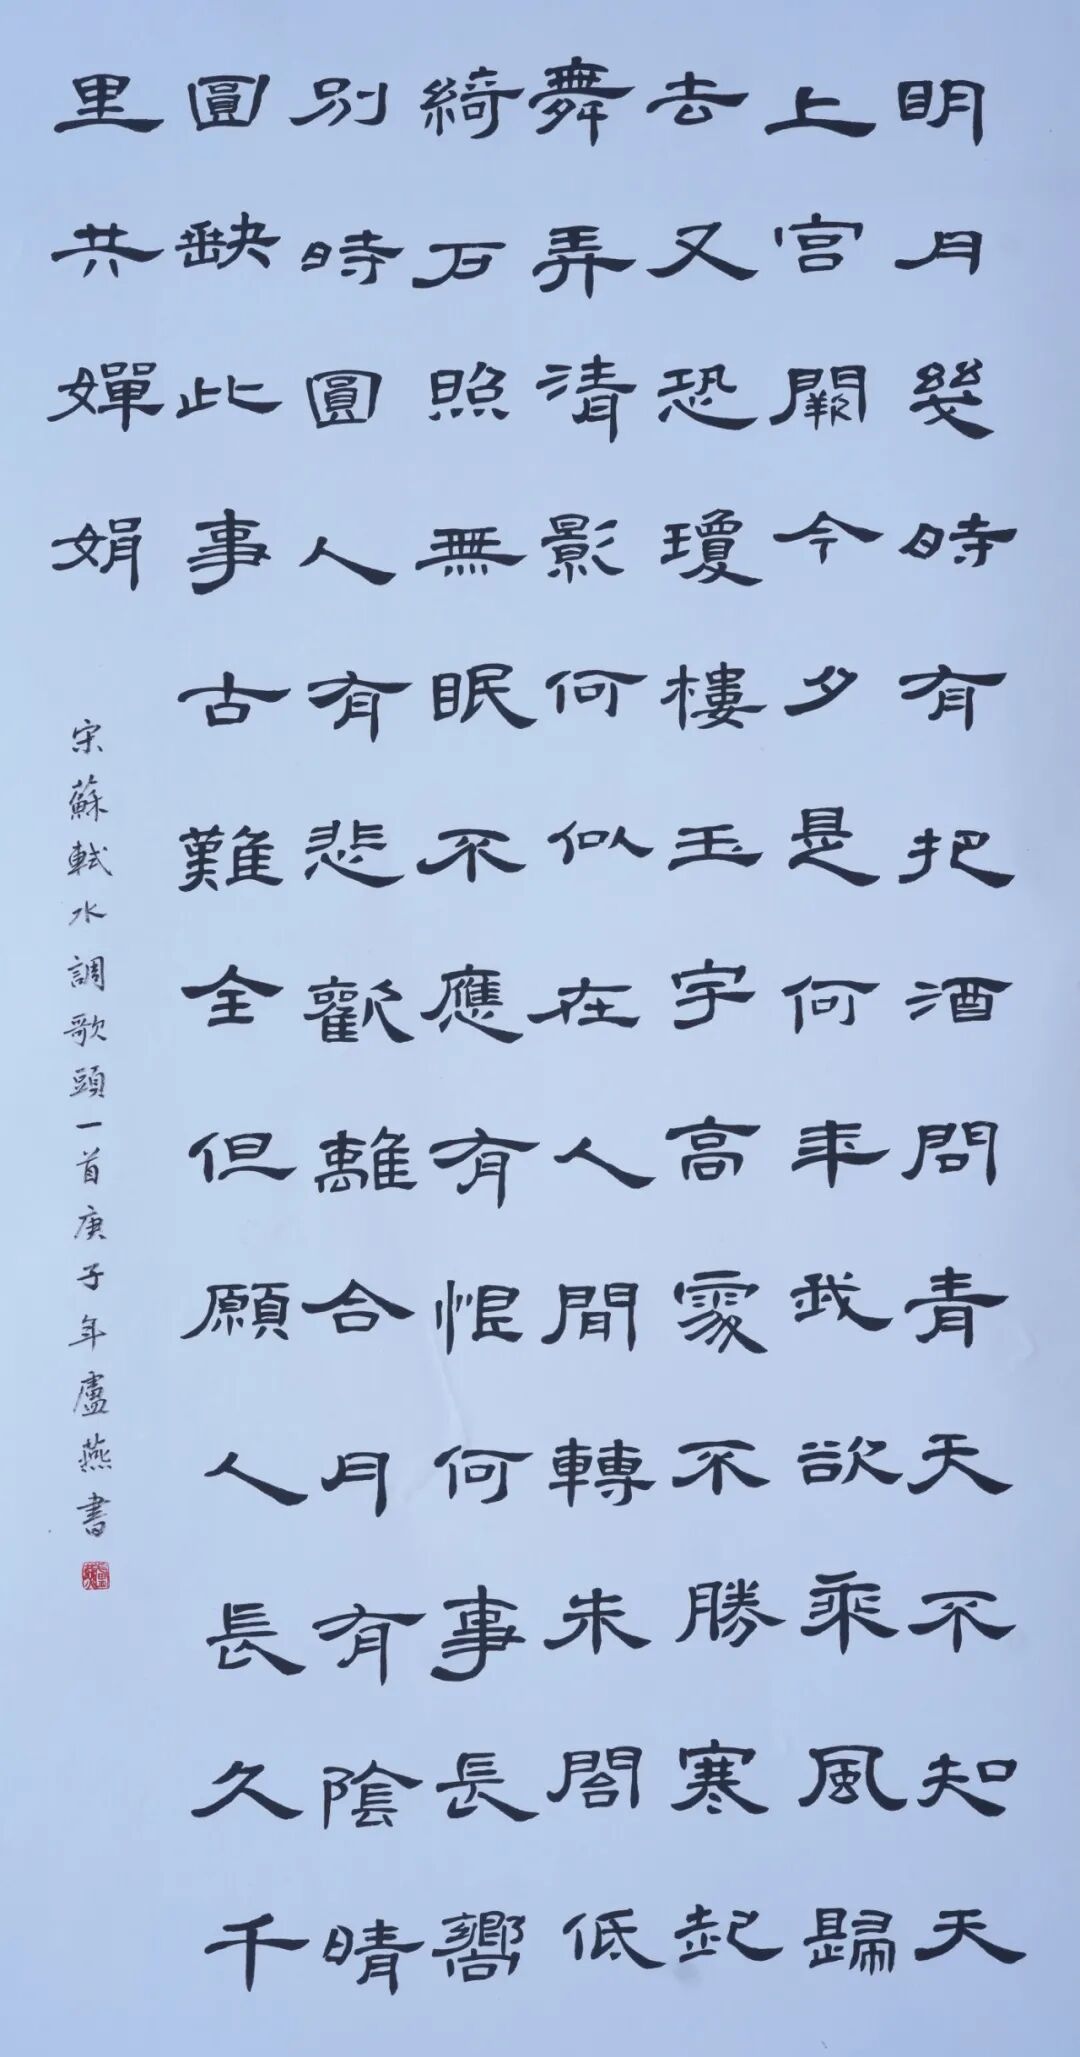 明月幾時有把酒問青天不知天
上宫闕今夕是何年我欲乘風歸
去又恐瓊樓玉宇高處不勝寒起
舞弄清影何似在人間轉朱閣低
綺石照無眠不應有恨何事長嚮
别時圓人有悲歡離合月有陰晴
圓缺此事古難全但願人長久千
里共嬋娟
宋蘇軾水調歌頭一首庚子年盧燕書